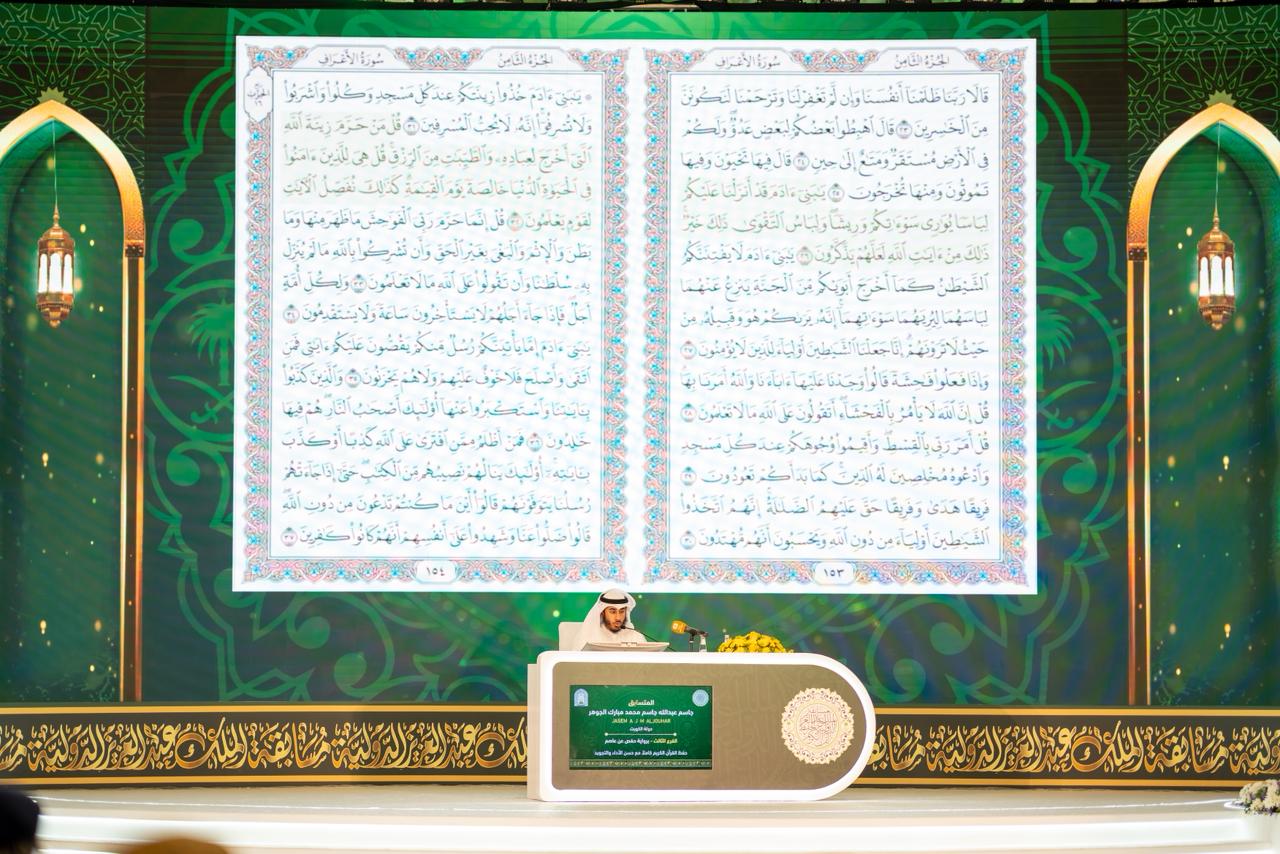 الجُزْءُ الثَّامِنُ سُورَةُ الأَعْرَافِ
قَالَا رَبَّنَا ظَلَمْنَآ أَنفُسَنَا وَإِن لَّمْ تَغْفِرْ لَنَا وَتَرْحَمْنَا لَنَكُونَنَّ
مِنَ ٱلْخَٰسِرِينَ ٢٣ قَالَ ٱهْبِطُوا۟ بَعْضُكُمْ لِبَعْضٍ عَدُوٌّ وَلَكُمْ
فِى ٱلْأَرْضِ مُسْتَقَرٌّ وَمَتَٰعٌ إِلَىٰ حِينٍ ٢٤ قَالَ فِيهَا تَحْيَوْنَ وَفِيهَا
تَمُوتُونَ وَمِنْهَا تُخْرَجُونَ ٢٥ يَٰبَنِىٓ ءَادَمَ قَدْ أَنزَلْنَا عَلَيْكُمْ
لِبَاسًا يُوَٰرِى سَوْءَٰتِكُمْ وَرِيشًا وَلِبَاسُ ٱلتَّقْوَىٰ ذَٰلِكَ خَيْرٌ
ذَٰلِكَ مِنْ ءَايَٰتِ ٱللَّهِ لَعَلَّهُمْ يَذَّكَّرُونَ ٢٦ يَٰبَنِىٓ ءَادَمَ لَا يَفْتِنَنَّكُمُ
ٱلشَّيْطَٰنُ كَمَآ أَخْرَجَ أَبَوَيْكُم مِّنَ ٱلْجَنَّةِ يَنزِعُ عَنْهُمَا
لِبَاسَهُمَا لِيُرِيَهُمَا سَوْءَٰتِهِمَآ إِنَّهُۥ يَرَىٰكُمْ هُوَ وَقَبِيلُهُۥ مِنْ
حَيْثُ لَا تَرَوْنَهُمْ إِنَّا جَعَلْنَا ٱلشَّيَٰطِينَ أَوْلِيَآءَ لِلَّذِينَ لَا يُؤْمِنُونَ ٢٧
وَإِذَا فَعَلُوا۟ فَٰحِشَةً قَالُوا۟ وَجَدْنَا عَلَيْهَآ ءَابَآءَنَا وَٱللَّهُ أَمَرَنَا بِهَا
قُلْ إِنَّ ٱللَّهَ لَا يَأْمُرُ بِٱلْفَحْشَآءِ أَتَقُولُونَ عَلَى ٱللَّهِ مَا لَا تَعْلَمُونَ ٢٨
قُلْ أَمَرَ رَبِّى بِٱلْقِسْطِ وَأَقِيمُوا۟ وُجُوهَكُمْ عِندَ كُلِّ مَسْجِدٍ
وَٱدْعُوهُ مُخْلِصِينَ لَهُ ٱلدِّينَ كَمَا بَدَأَكُمْ تَعُودُونَ ٢٩
فَرِيقًا هَدَىٰ وَفَرِيقًا حَقَّ عَلَيْهِمُ ٱلضَّلَٰلَةُ إِنَّهُمُ ٱتَّخَذُوا۟
ٱلشَّيَٰطِينَ أَوْلِيَآءَ مِن دُونِ ٱللَّهِ وَيَحْسَبُونَ أَنَّهُم مُّهْتَدُونَ ٣٠
١٥٣
الجُزْءُ الثَّامِنُ سُورَةُ الأَعْرَافِ
يَٰبَنِىٓ ءَادَمَ خُذُوا۟ زِينَتَكُمْ عِندَ كُلِّ مَسْجِدٍ وَكُلُوا۟ وَٱشْرَبُوا۟
وَلَا تُسْرِفُوٓا۟ إِنَّهُۥ لَا يُحِبُّ ٱلْمُسْرِفِينَ ٣١ قُلْ مَنْ حَرَّمَ زِينَةَ ٱللَّهِ
ٱلَّتِىٓ أَخْرَجَ لِعِبَادِهِۦ وَٱلطَّيِّبَٰتِ مِنَ ٱلرِّزْقِ قُلْ هِىَ لِلَّذِينَ ءَامَنُوا۟
فِى ٱلْحَيَوٰةِ ٱلدُّنْيَا خَالِصَةً يَوْمَ ٱلْقِيَٰمَةِ كَذَٰلِكَ نُفَصِّلُ ٱلْءَايَٰتِ
لِقَوْمٍ يَعْلَمُونَ ٣٢ قُلْ إِنَّمَا حَرَّمَ رَبِّىَ ٱلْفَوَٰحِشَ مَا ظَهَرَ مِنْهَا وَمَا
بَطَنَ وَٱلْإِثْمَ وَٱلْبَغْىَ بِغَيْرِ ٱلْحَقِّ وَأَن تُشْرِكُوا۟ بِٱللَّهِ مَا لَمْ يُنَزِّلْ
بِهِۦ سُلْطَٰنًا وَأَن تَقُولُوا۟ عَلَى ٱللَّهِ مَا لَا تَعْلَمُونَ ٣٣ وَلِكُلِّ أُمَّةٍ
أَجَلٌ فَإِذَا جَآءَ أَجَلُهُمْ لَا يَسْتَأْخِرُونَ سَاعَةً وَلَا يَسْتَقْدِمُونَ ٣٤
يَٰبَنِىٓ ءَادَمَ إِمَّا يَأْتِيَنَّكُمْ رُسُلٌ مِّنكُمْ يَقُصُّونَ عَلَيْكُمْ ءَايَٰتِى فَمَنِ
ٱتَّقَىٰ وَأَصْلَحَ فَلَا خَوْفٌ عَلَيْهِمْ وَلَا هُمْ يَحْزَنُونَ ٣٥ وَٱلَّذِينَ كَذَّبُوا۟
بِـَٔايَٰتِنَا وَٱسْتَكْبَرُوا۟ عَنْهَآ أُو۟لَٰٓئِكَ أَصْحَٰبُ ٱلنَّارِ هُمْ فِيهَا
خَٰلِدُونَ ٣٦ فَمَنْ أَظْلَمُ مِمَّنِ ٱفْتَرَىٰ عَلَى ٱللَّهِ كَذِبًا أَوْ كَذَّبَ
بِـَٔايَٰتِهِۦٓ أُو۟لَٰٓئِكَ يَنَالُهُمْ نَصِيبُهُم مِّنَ ٱلْكِتَٰبِ حَتَّىٰٓ إِذَا جَآءَتْهُمْ
رُسُلُنَا يَتَوَفَّوْنَهُمْ قَالُوٓا۟ أَيْنَ مَا كُنتُمْ تَدْعُونَ مِن دُونِ ٱللَّهِ
قَالُوا۟ ضَلُّوا۟ عَنَّا وَشَهِدُوا۟ عَلَىٰٓ أَنفُسِهِمْ أَنَّهُمْ كَانُوا۟ كَٰفِرِينَ ٣٧
١٥٤
المتسابق
جاسم عبدالله جاسم محمد مبارك الجوهر
JASEM A J M ALJOUHAR
دولة الكويت
الفرع الثالث - برواية حفص عن عاصم
حفظ القرآن الكريم كاملاً مع حسن الأداء والتجويد
مسابقة الملك عبدالعزيز الدولية